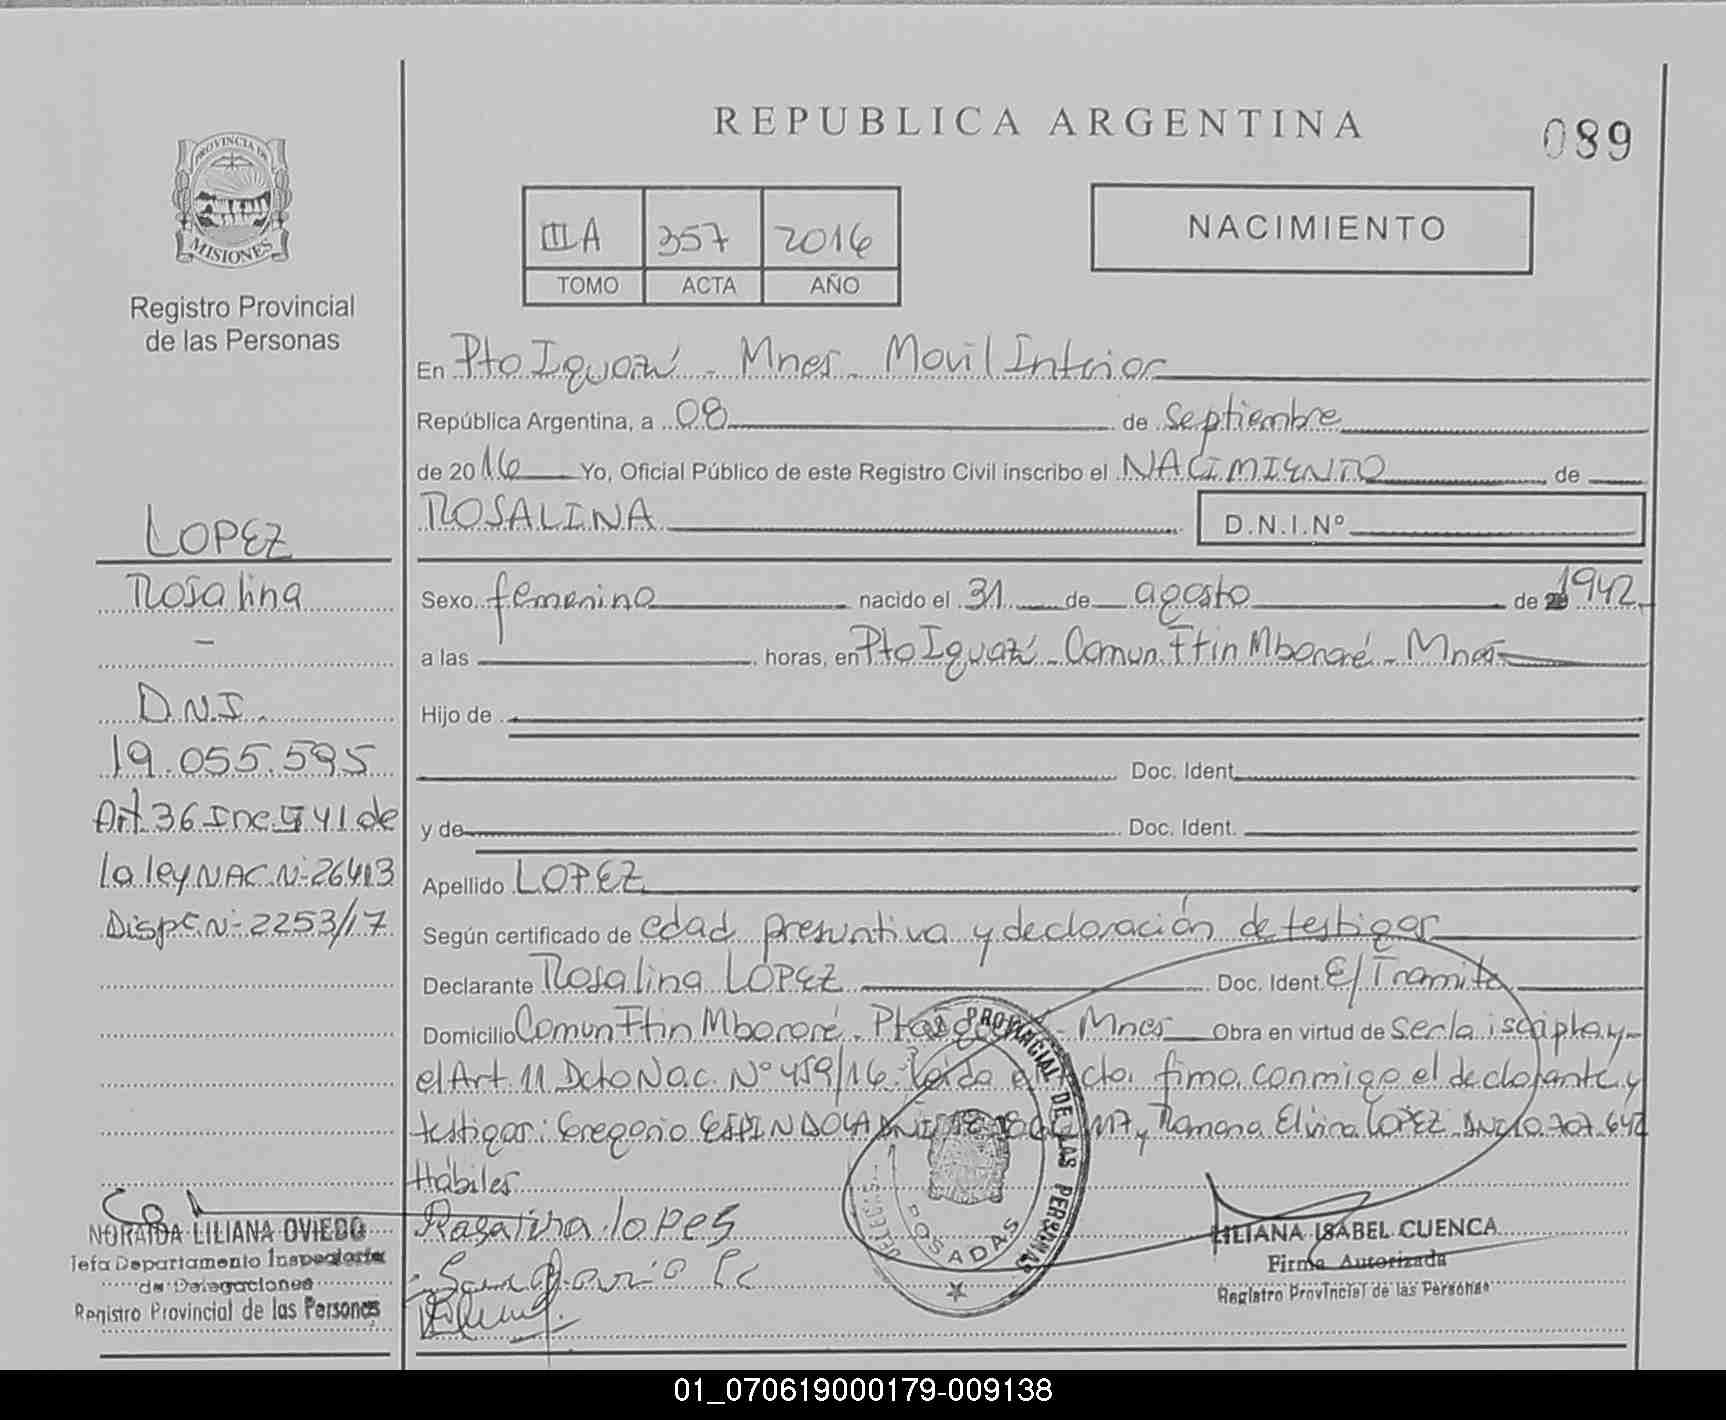 REPUBLICA ARGENTINA
089
PROVINCIA DE
MISIONES
Registro Provincial
de las Personas
III A 357 2016
TOMO ACTA AÑO
NACIMIENTO
En Pto Iguazú - Mnes - Movil Interior
República Argentina, a 08 de septiembre
de 2016 Yo, Oficial Público de este Registro Civil inscribo el NACIMIENTO de
ROSALINA D.N.I. Nº
Sexo femenino nacido el 31 de agosto de 1942
a las horas, en Pto Iguazú - Comun. Ftin Mbororé - Mnes
Hijo de
Doc. Ident.
y de Doc. Ident.
Apellido LOPEZ
Según certificado de edad presuntiva y declaración de testigos
Declarante Rosalina LOPEZ Doc. Ident. E/Tramite
Domicilio Comun Ftin Mbororé - Pto Mnes Obra en virtud de ser la y
el Art. 11 Dcto Nac. Nº 459/16. Leida el acta, firma conmigo el declarante y
testigos: Gregorio ESPINDOLA y Ramona Elvira LOPEZ DNI 10.707.642
Habiles
Rosalina lopes
LOPEZ
Rosalina
-
D.N.I.
19.055.595
Art. 36 Inc. y 41 de
la ley NAC. Nº 26413
Disp Nº 2253/17
NORAIDA LILIANA OVIEDO
Jefa Departamento Inspectoría
de Delegaciones
Registro Provincial de las Personas
PROVINCIAL DE LAS PERSONAS
POSADAS
LILIANA ISABEL CUENCA
Firma Autorizada
Registro Provincial de las Personas
01_070619000179-009138